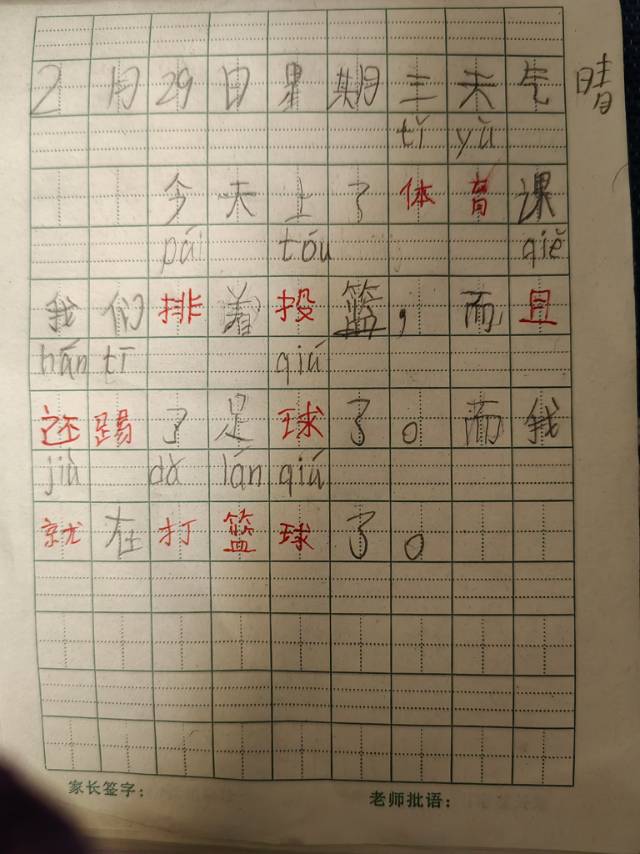 2月29日星期三天气晴
tǐ yù
今天上了体育课
pái tóu qiě
我们排着投篮,而且
hán tī qiú
还踢了足球了。而我
jiù dǎ lán qiú
就在打篮球了。
家长签字: 老师批语: